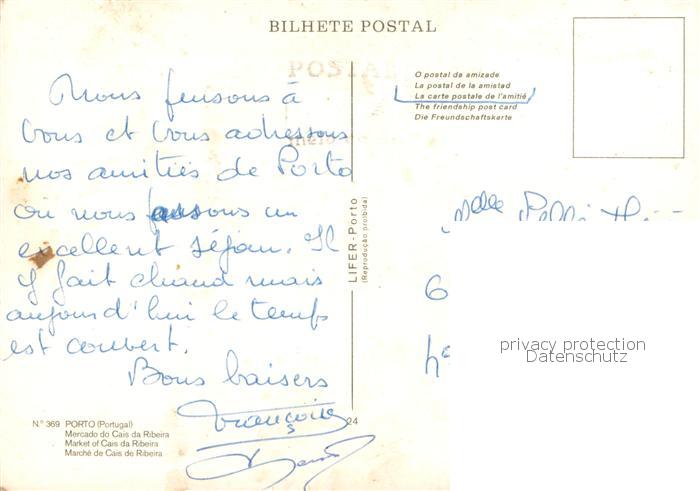 BILHETE POSTAL
POSTAL
O postal da amizade
La postal de la amistad
La carte postale de l'amitié
The friendship post card
Die Freundschaftskarte
Nous pensons à
vous et vous adressons
nos amitiés de Porto
où nous passons un
excellent séjour. Il
y fait chaud mais
aujourd'hui le temps
est couvert.
Bons baisers
Françoise
LIFER-Porto
(Reprodução proibida)
24
Melle
6
privacy protection
Datenschutz
N.° 369 PORTO (Portugal)
Mercado do Cais da Ribeira
Market of Cais da Ribeira
Marché de Cais de Ribeira